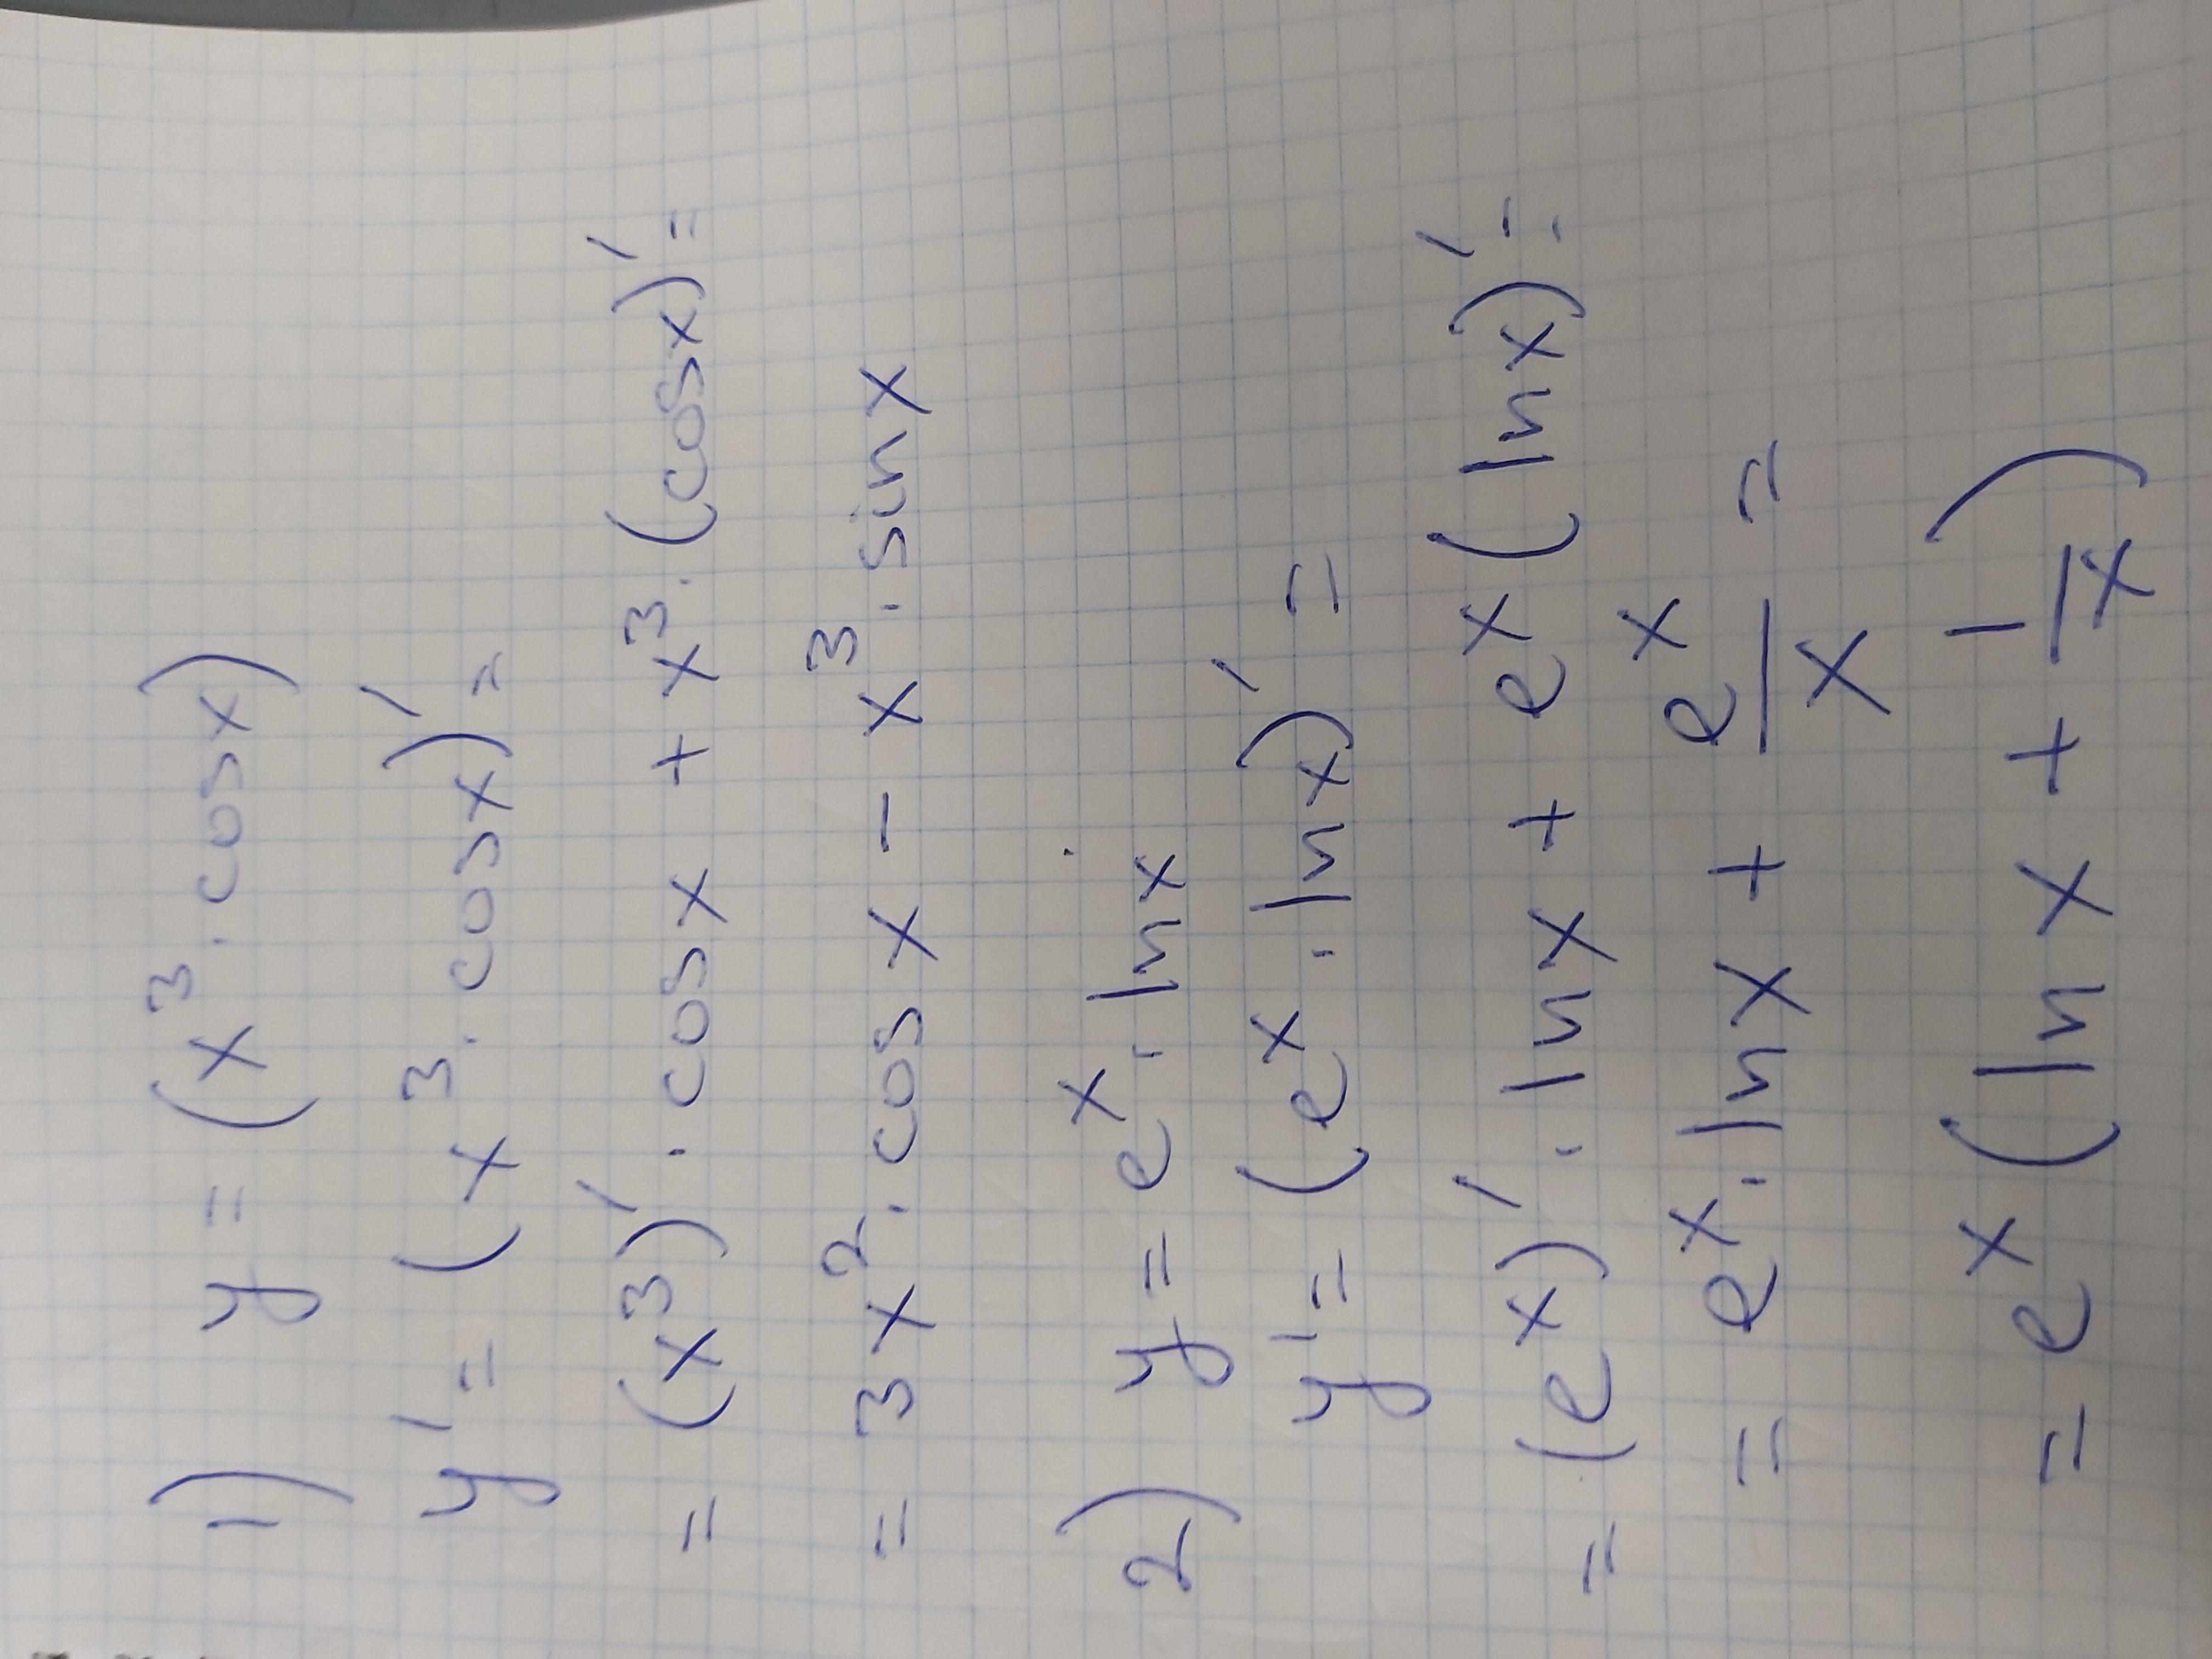 1) y = (x³·cosx)
y' = (x³·cosx)' =
= (x³)'·cosx + x³·(cosx)' =
= 3x²·cosx - x³·sinx
2) y = eˣ·lnx
y' = (eˣ·lnx)' =
= (eˣ)'·lnx + eˣ(lnx)' =
= eˣ·lnx + eˣ/x =
= eˣ(lnx + 1/x)